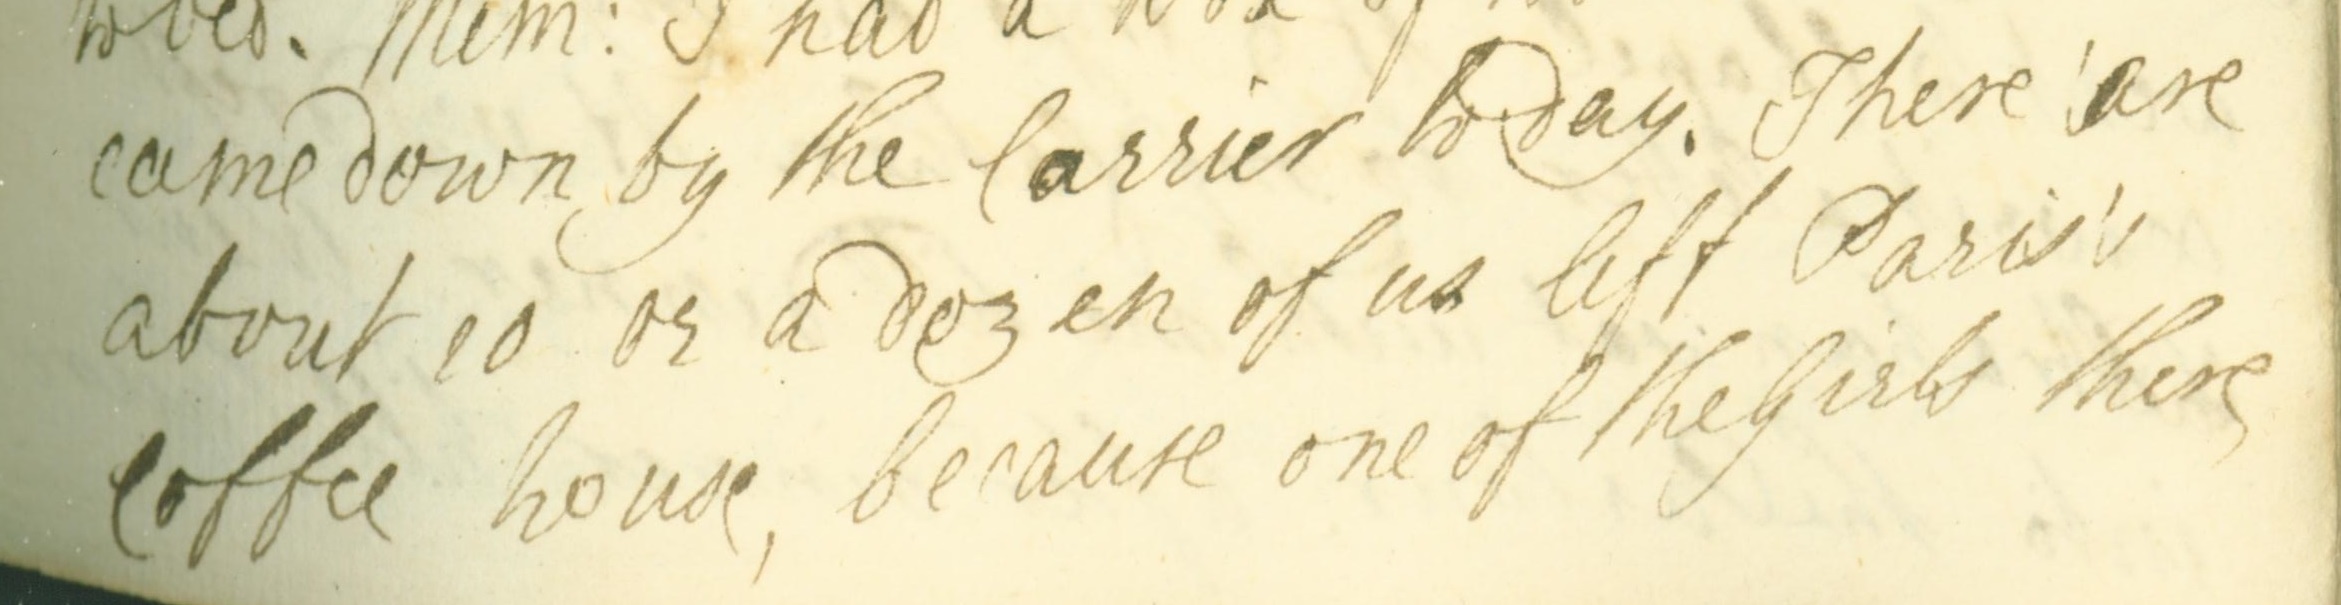 to bed. Mem: I had a box of
came down by the Carrier to day. There are
about 10 or a dozen of us left Paris's
Coffee house, because one of the Girls there